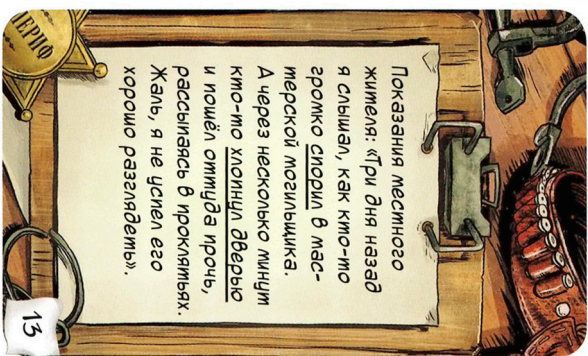 Показания местного
жителя: «Три дня назад
я слышал, как кто-то
громко спорил в мас-
терской могильщика.
А через несколько минут
кто-то хлопнул дверью
и пошёл оттуда прочь,
рассыпаясь в проклятьях.
Жаль, я не успел его
хорошо разглядеть».
ШЕРИФ
13